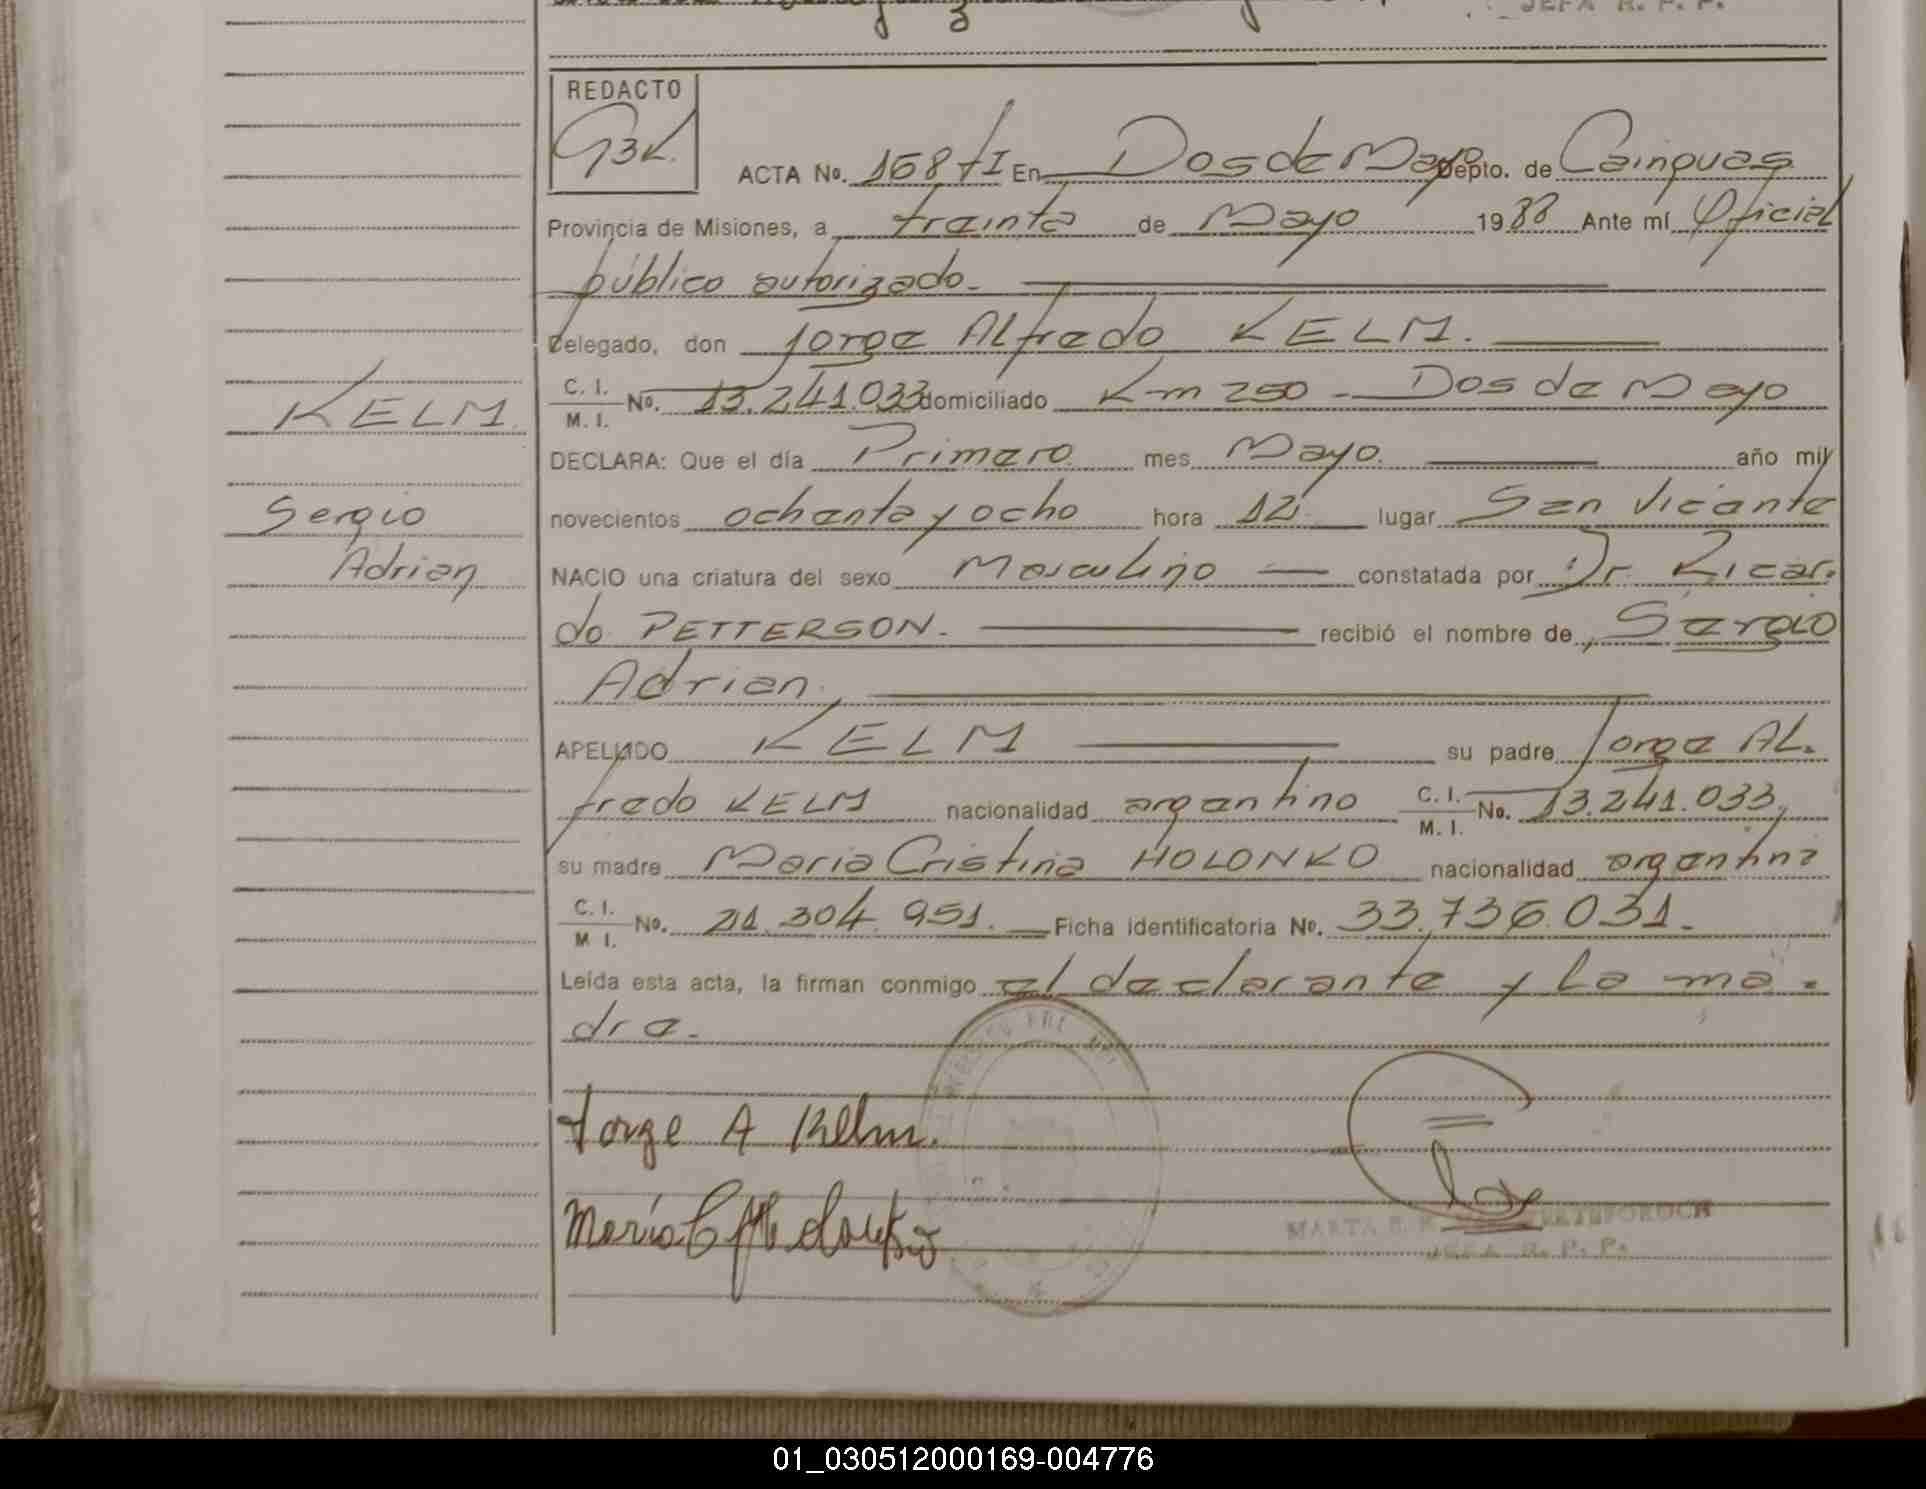 JEFA R. P. P.
REDACTO
ACTA No. 168 tI En Dos de Mayo Depto. de Cainguas
Provincia de Misiones, a trainta de Mayo 1988 Ante mí Oficial
público autorizado.
Delegado, don Jorge Alfredo KELM.
C. I.
M. I. No. 13.241.033 domiciliado Km 250 - Dos de Mayo
KELM
DECLARA: Que el día Primero mes Mayo. año mil
Sergio
novecientos ochenta y ocho hora 12 lugar San Vicente
Adrian
NACIO una criatura del sexo Masculino constatada por Dr. Ricar.
do PETTERSON. recibió el nombre de, Sergio
Adrian.
APELLIDO KELM su padre Jorge Al.
fredo KELM nacionalidad argentino C. I.
M. I. No. 13.241.033,
su madre Maria Cristina HOLONKO nacionalidad argentina
C. I.
M I. No. 21.304.951. Ficha identificatoria No. 33.736.031.
Leída esta acta, la firman conmigo el declarante y la ma.
dre.
Jorge A Kelm.
María C
MARTA
JEFA R. P. P.
01_030512000169-004776